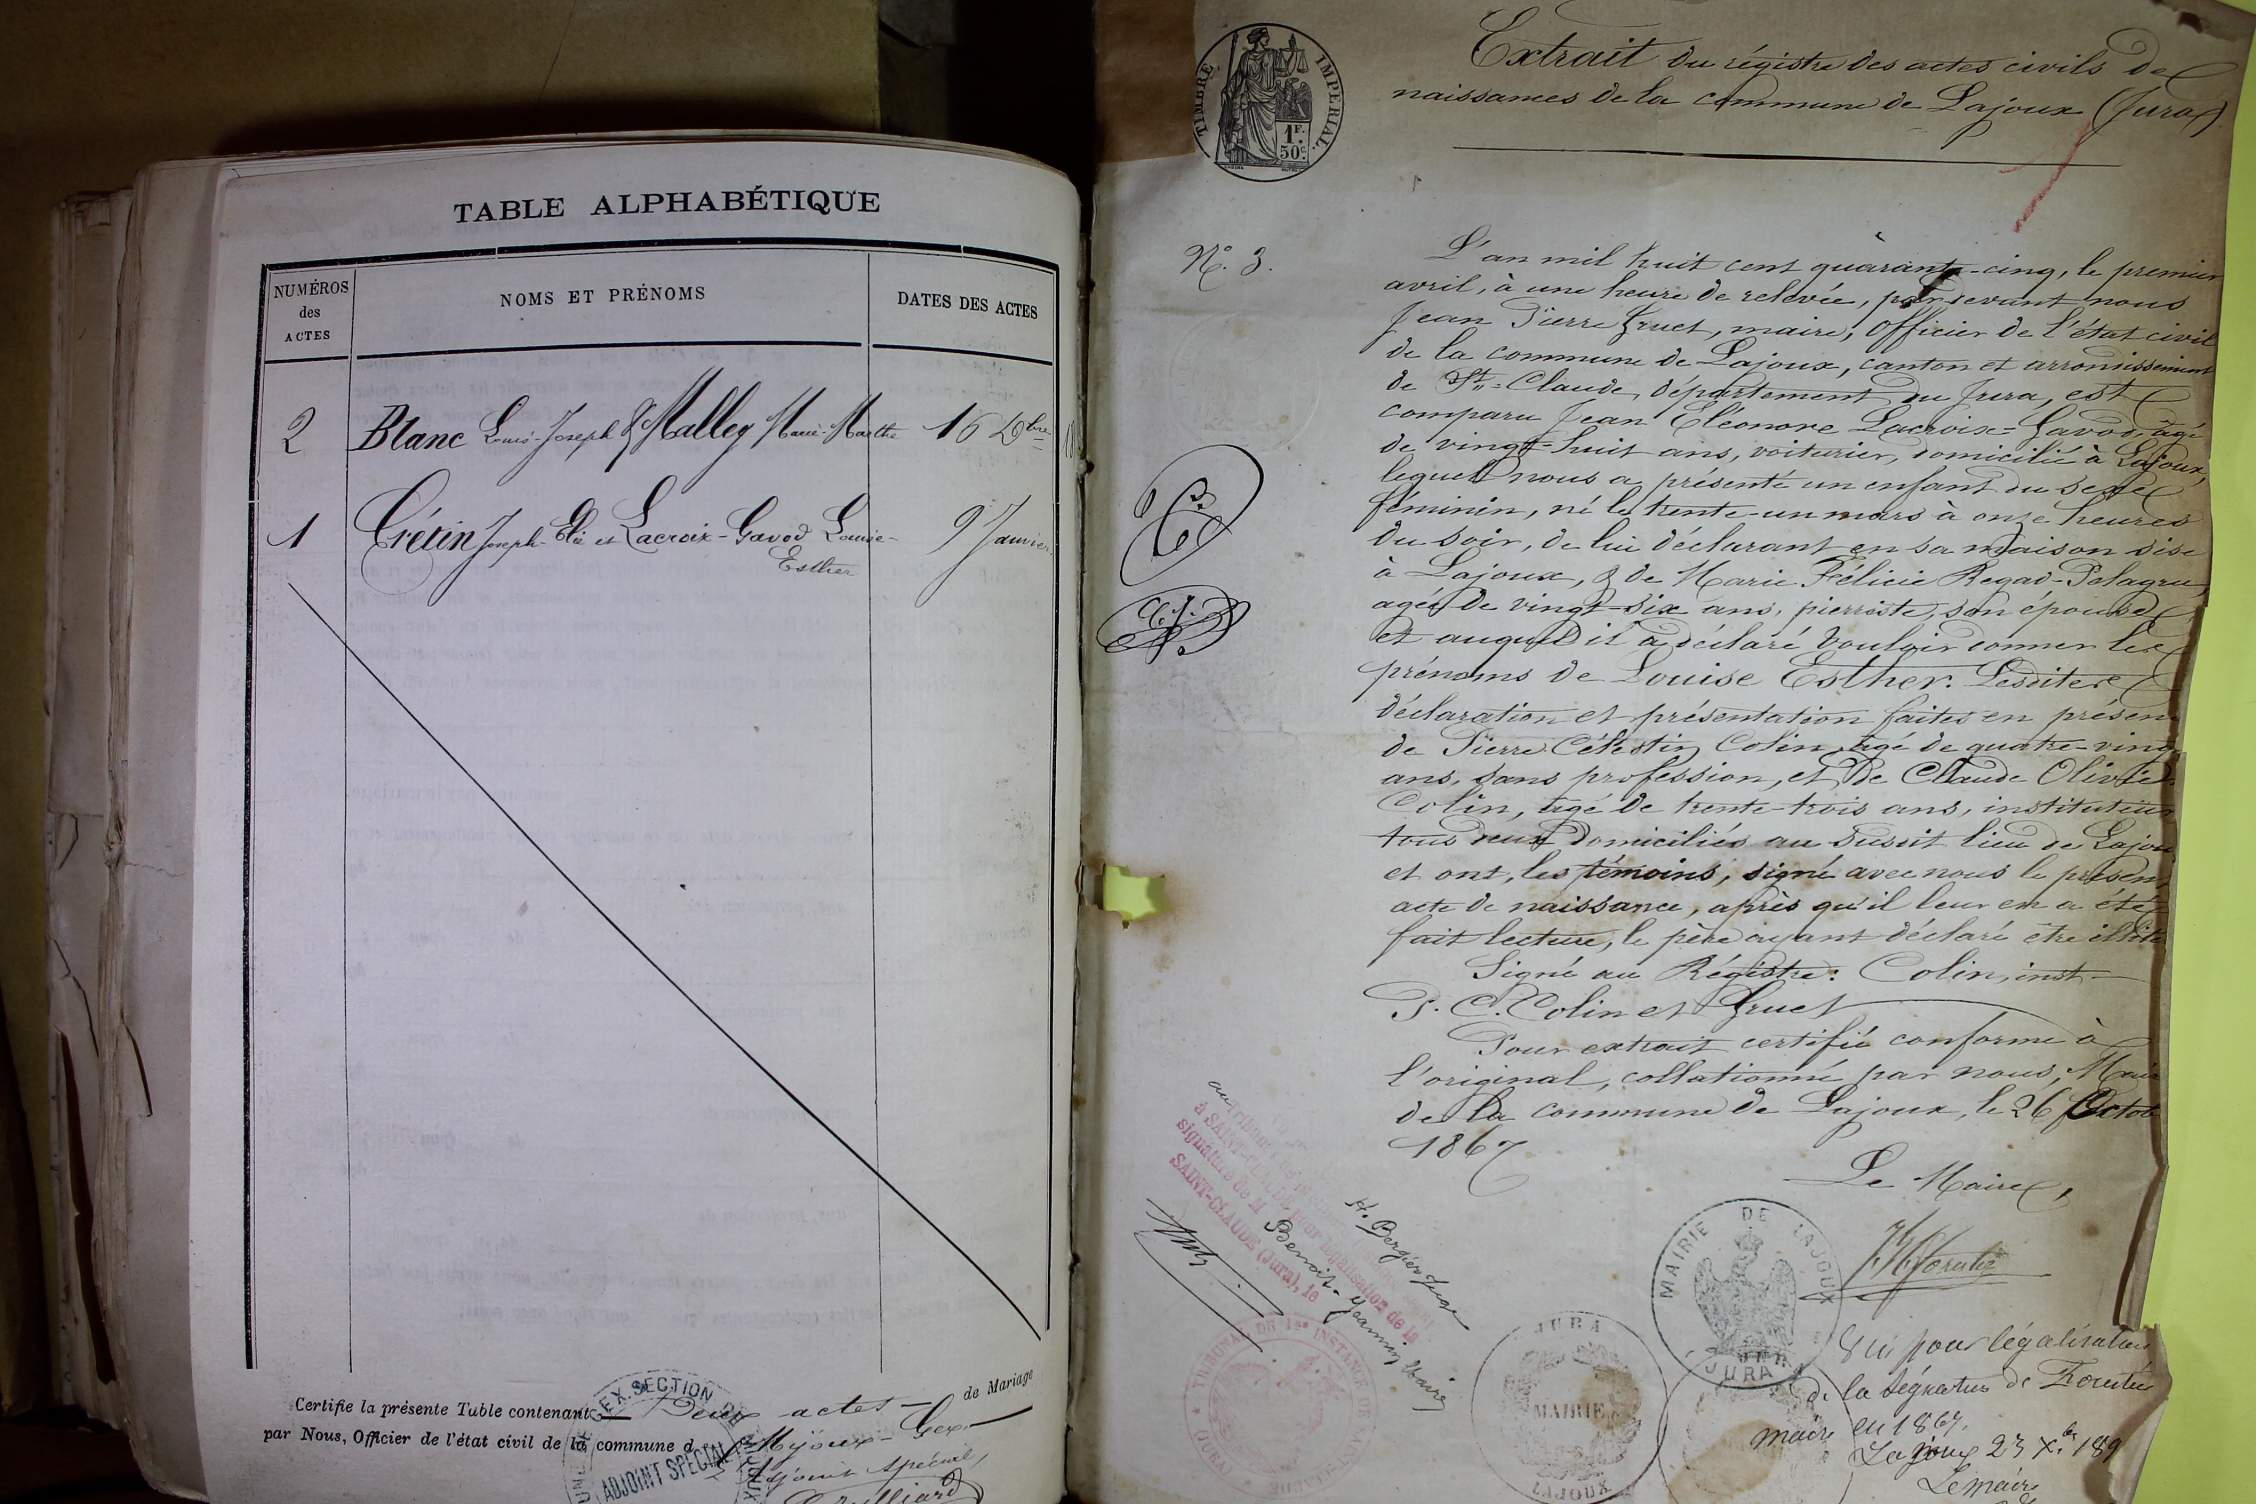 TABLE ALPHABÉTIQUE
NUMÉROS
des
ACTES
NOMS ET PRÉNOMS
DATES DES ACTES
2 Blanc Louis-Joseph & Malley Marie-Marthe 16 Xbre
1 Crétin Joseph-Elie et Lacroix-Gavod Louise-
Esther
9 Janvier
Certifie la présente Table contenant Deux actes de Mariage
par Nous, Officier de l'état civil de la commune d Mijoux-Gex
Adjoint Spécial,
ADJOINT SPECIAL
GEX. SECTION DE
TIMBRE IMPERIAL.
1F.
50c.
Extrait du régistre des actes civils de
naissances de la commune de Lajoux (Jura)
N° 3.
L'an mil huit cent quarante-cinq, le premier
avril, à une heure de relevée, par devant nous
Jean Pierre Gruet, maire, Officier de l'état civil
de la commune de Lajoux, canton et arrondissement
de St-Claude, département du Jura, est
comparu Jean Eléonore Lacroix-Gavod, âgé
de vingt-huit ans, voiturier, domicilié à Lajoux,
lequel nous a présenté un enfant du sexe
féminin, né le trente-un mars à onze heures
du soir, de lui déclarant en sa maison sise
à Lajoux, & de Marie Félicie Regad-Pelagru
agée de vingt-six ans, pierriste, son épouse
et auquel il a déclaré vouloir donner les
prénoms de Louise Esther. Lesdites
déclaration et présentation faites en présen
de Pierre Célestin Colin, âgé de quatre-ving
ans, sans profession, et de Claude Olivier
Colin, âgé de trente-trois ans, instituteur
tous deux domiciliés au susdit lieu de Lajou
et ont, les témoins, signé avec nous le présen
acte de naissance, après qu'il leur en a été
fait lecture, le père ayant déclaré être illité
Signé au Régistre: Colin, inst.
P. C. Colin et Gruet
Pour extrait certifié conforme à
l'original, collationné par nous, Maire
de la commune de Lajoux, le 26 Octob
1867
Le Maire,
MAIRIE DE LAJOUX
JURA
Vu pour légalisation
de la signature de
maire en 1867.
Lajoux 23 Xbre 189
Le maire
signature de M Benoit-Jeannin Maire
SAINT-CLAUDE (Jura), le
H. Bergier Juge
TRIBUNAL DE 1re INSTANCE DE
JURA
MAIRIE
LAJOUX